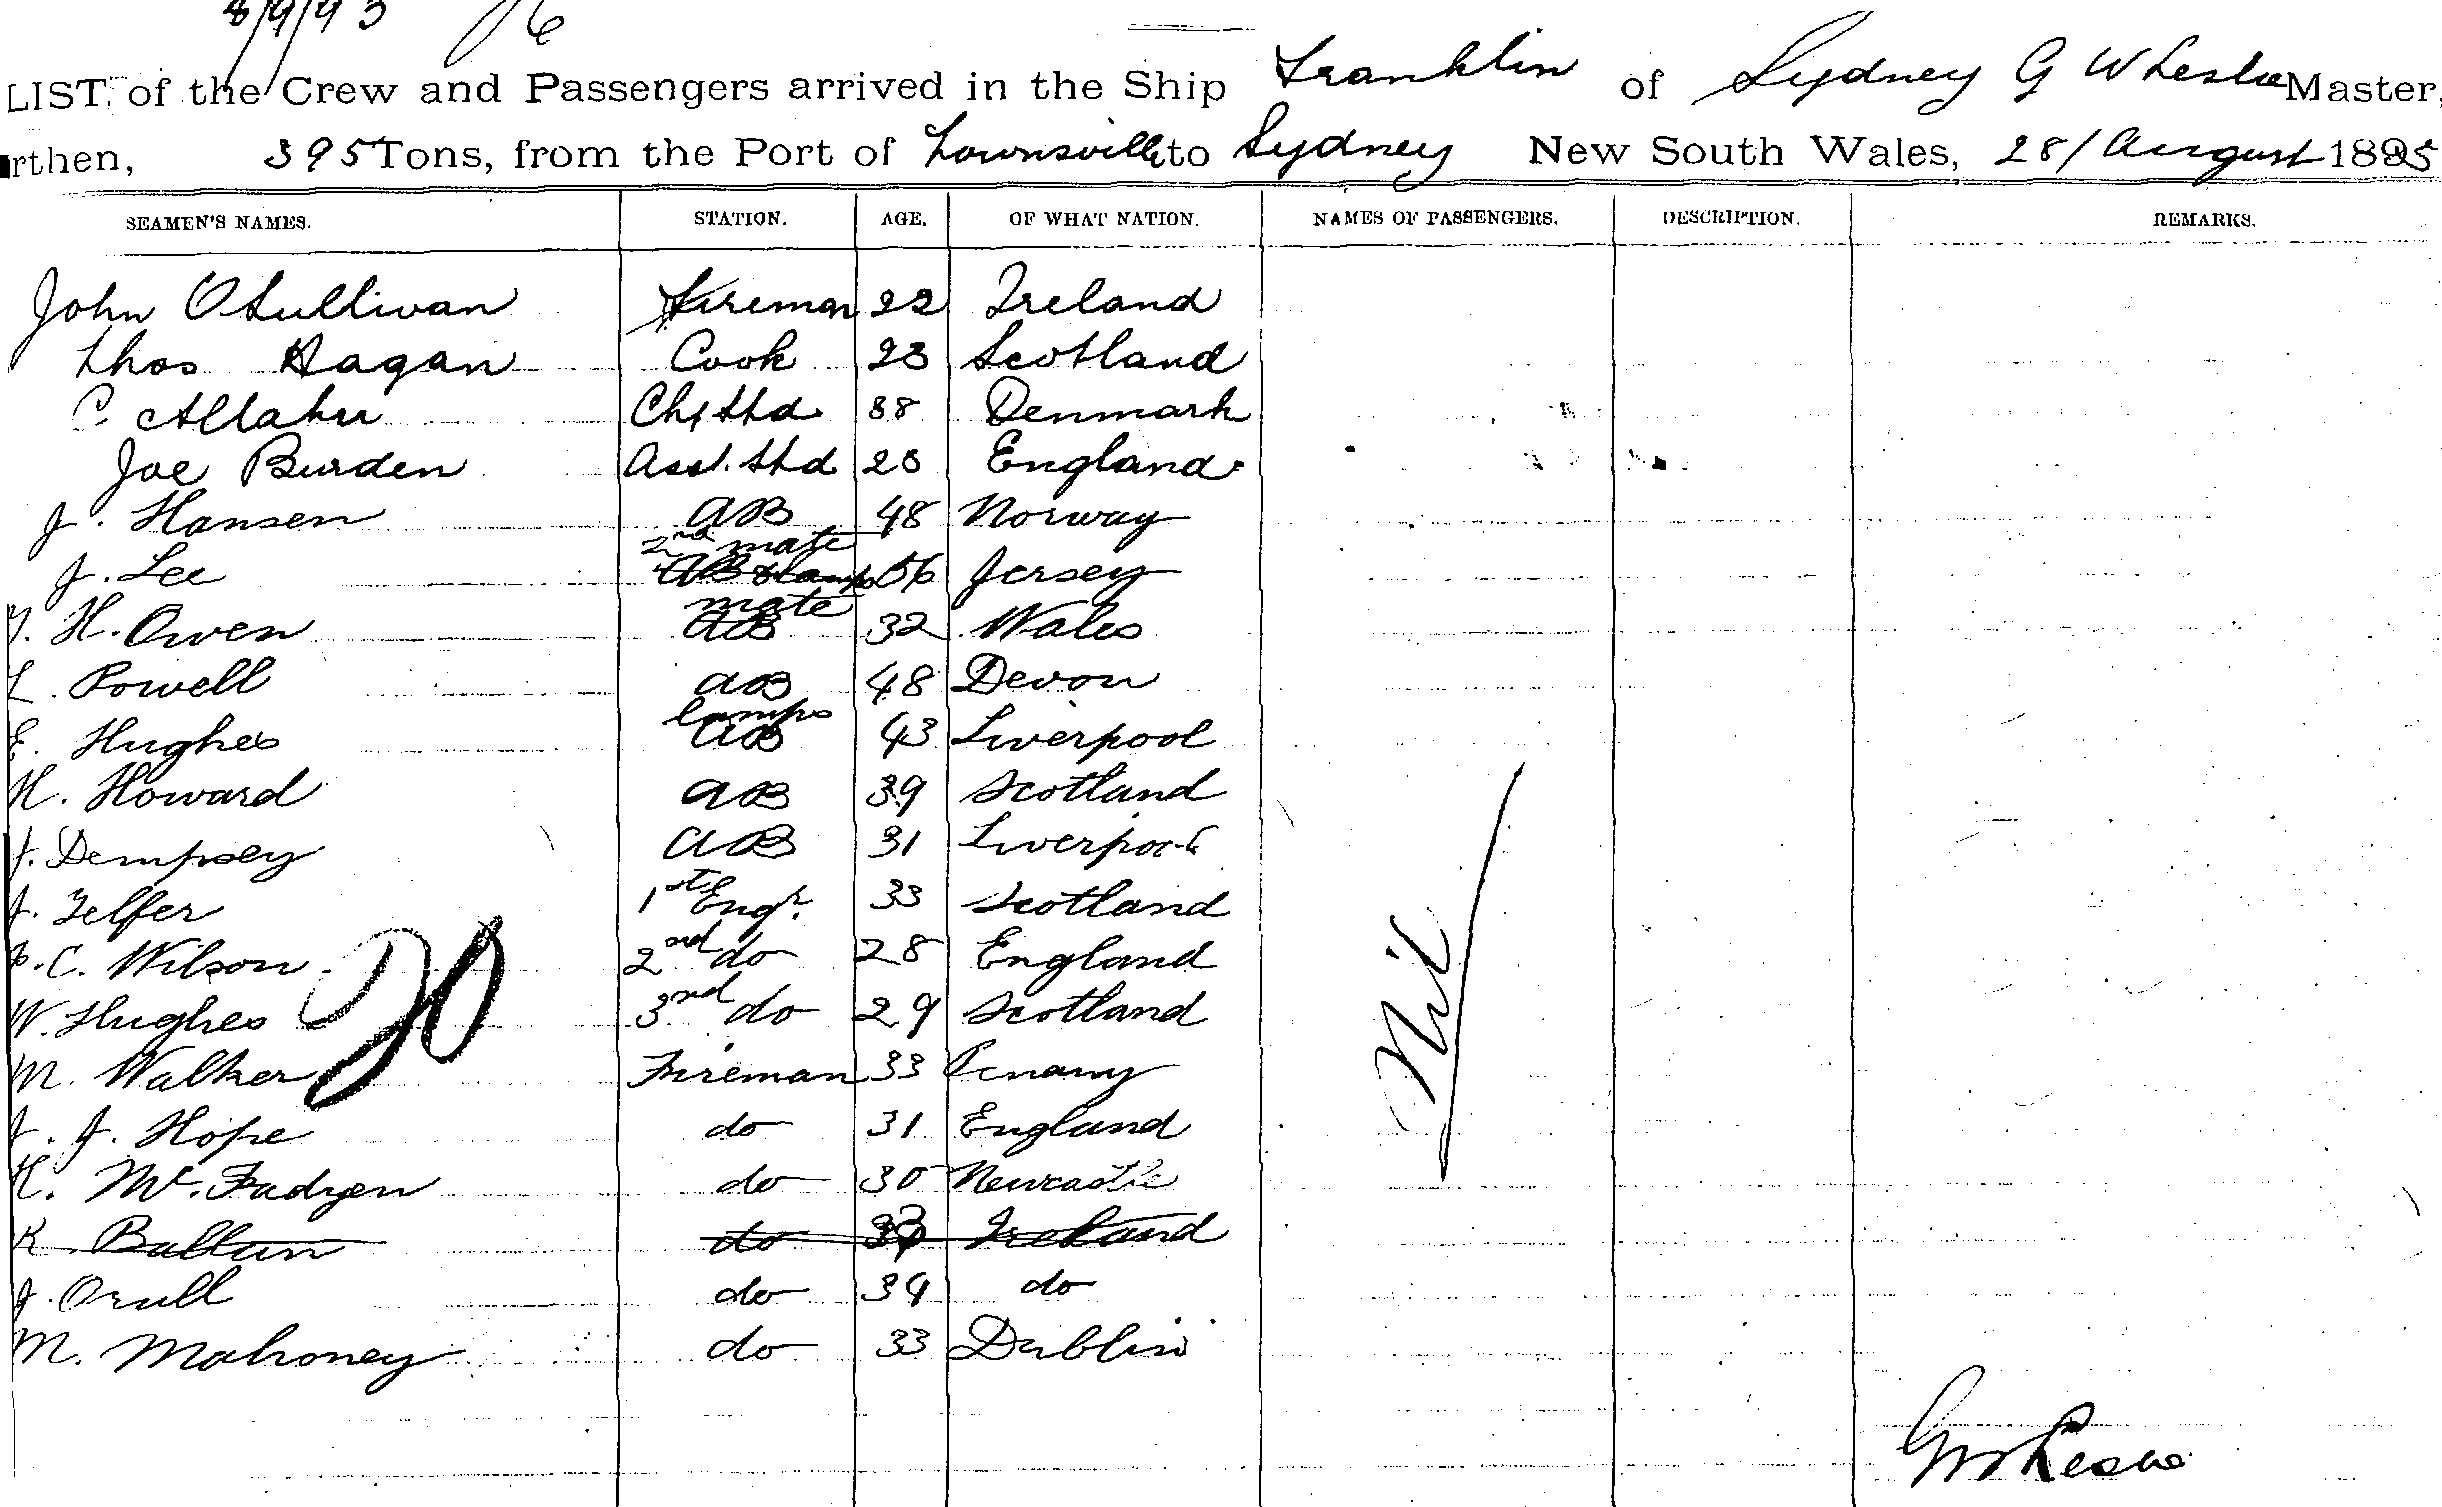 8/9/93 16
LIST of the Crew and Passengers arrived in the Ship Franklin of Sydney G W Leslie Master,
rthen, 395 Tons, from the Port of Townsville to Sydney New South Wales, 28/ August 1895
SEAMEN'S NAMES. STATION. AGE. OF WHAT NATION. NAMES OF PASSENGERS. DESCRIPTION. REMARKS.
John OSullivan Fireman 22 Ireland
Thos Hagan Cook 23 Scotland
C. Chf Std 38 Denmark
Joe Burden Asst. Std 23 England
J. Hansen AB 48 Norway
2nd mate
J. Lee AB & lamps 56 Jersey
mate
H. Owen AB 32 Wales
L. Powell AB 48 Devon
lamps
E. Hughes AB 43 Liverpool
H. Howard AB 39 Scotland
J. Dempsey AB 31 Liverpool
J. Telfer 1st Engr. 33 Scotland
C. Wilson 2nd do 28 England
W. Hughes 3rd do 29 Scotland
20
M. Walker Fireman 33 Penang
J. J. Hope do 31 England
Nil
H. McFadyen do 30 Newcastle
R Ballan do Ireland
J. Orull do 34 do
M. Mahoney do 33 Dublin
GW Leslie